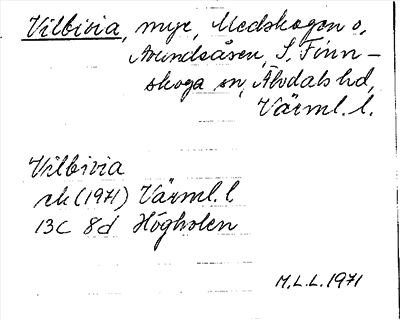 Vilbivia, myr, Medskogen o,
Arundsåsen, S. Finn-
skoga sn, Älvdals hd,
Värml. l.
Vilbivia
ek (1971) Värml. l
13C 8d Högholen
M.L.L. 1971